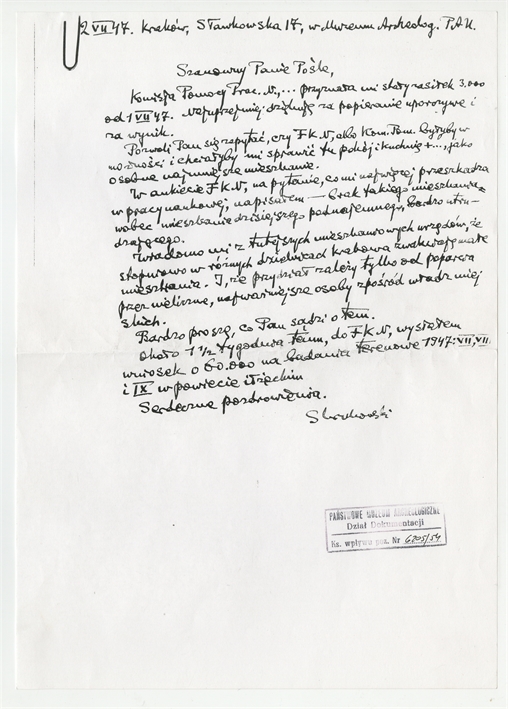 2 VII 47. Kraków, Sławkowska 17, w Muzeum Archeolog. P.A.U.
Szanowny Panie Pośle,
Komisja Pomocy Prac. N.,... przyznała mi stały zasiłek 3.000
od 1 VII 47. Najuprzejmiej dziękuję za popieranie uporczywe i
za wynik.
Pozwoli Pan się zapytać, czy F.K.N, albo Kom. Pom. byłyby w
możności i chciałyby mi sprawić tu pokój i kuchnię +..., jako
osobne najmniejsze mieszkanie.
W ankiecie F.K.N, na pytanie, co mi najwięcej przeszkadza
w pracy naukowej, napisałem — brak takiego mieszkania
wobec mieszkania dzisiejszego podnajemnego, bardzo utru-
dzającego.
Wiadomo mi z tutejszych mieszkaniowych urzędów, że
stopniowo w różnych dzielnicach Krakowa zwalniają małe
mieszkania. I, że przydział zależy tylko od poparcia
przez nieliczne, najważniejsze osoby zpośród władz miej
skich.
Bardzo proszę, co Pan sądzi o tem.
Około 1 1/2 tygodnia temu, do F.K.N, wysłałem
wniosek o 60.000 na badania terenowe 1947: VII, VIII
i IX w powiecie iłżeckim
Serdeczne pozdrowienia.
PAŃSTWOWE MUZEUM ARCHEOLOGICZNE
Dział Dokumentacji
Ks. wpływu poz. Nr 6205/54